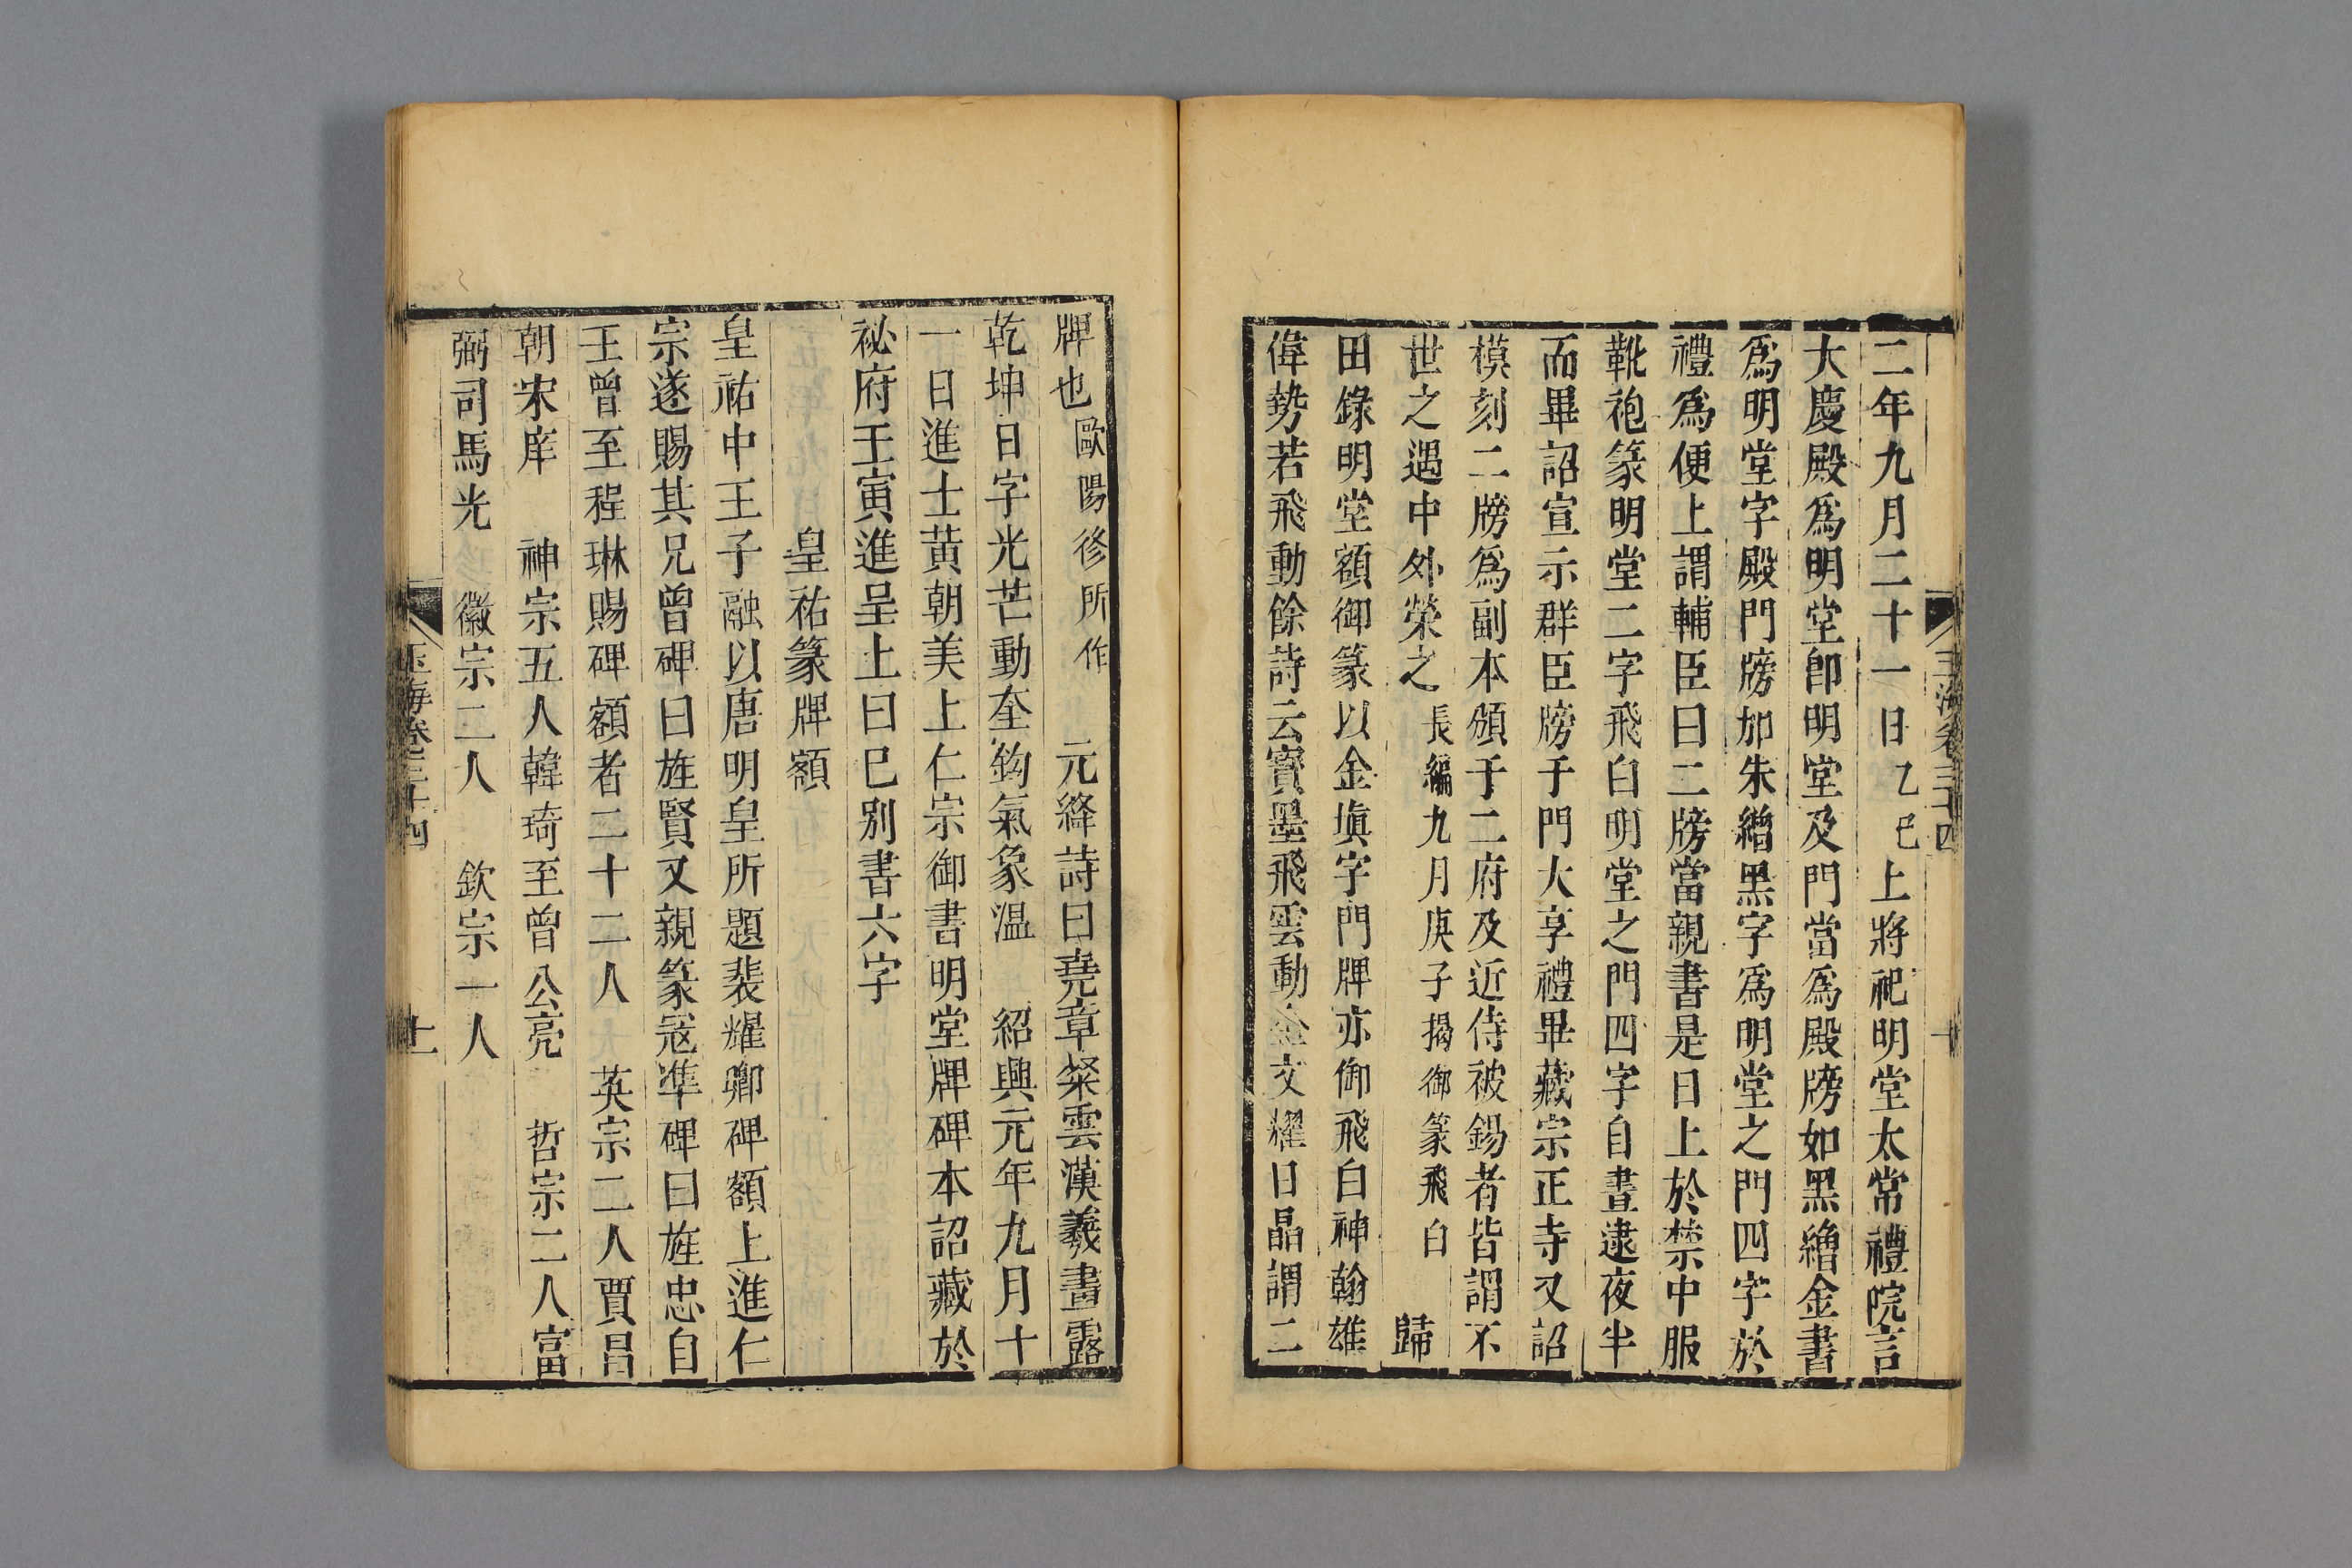 二年九月二十一日乙巳上將祀明堂太常禮院言
大慶殿爲明堂卽明堂及門當爲殿牓如黑繒金書
爲明堂字殿門牓加朱繒黑字爲明堂之門四字於
禮爲便上謂輔臣曰二牓當親書是日上於禁中服
靴袍篆明堂二字飛白明堂之門四字自晝逮夜半
而畢詔宣示群臣牓于門大享禮畢藏宗正寺又詔
模刻二牓爲副本頒于二府及近侍被錫者皆謂不
世之遇中外榮之長編九月庚子揭御篆飛白 歸
田錄明堂額御篆以金塡字門牌亦御飛白神翰雄
偉勢若飛動餘詩云寳墨飛雲動金文耀日晶謂二
玉海卷三十四 十
牌也歐陽修所作 元絳詩曰堯章粲雲漢羲畫露
乾坤日字光芒動奎鈎氣象温 紹興元年九月十
一日進士黃朝美上仁宗御書明堂牌碑本詔藏於
祕府壬寅進呈上曰巳別書六字
皇祐篆牌額
皇祐中王子融以唐明皇所題裴耀卿碑額上進仁
宗遂賜其兄曾碑曰旌賢又親篆寇準碑曰旌忠自
王曾至程琳賜碑額者二十二人 英宗二人賈昌
朝宋庠 神宗五人韓琦至曾公亮 哲宗二人富
弼司馬光 徽宗二人 欽宗一人
玉海卷三十四 十一